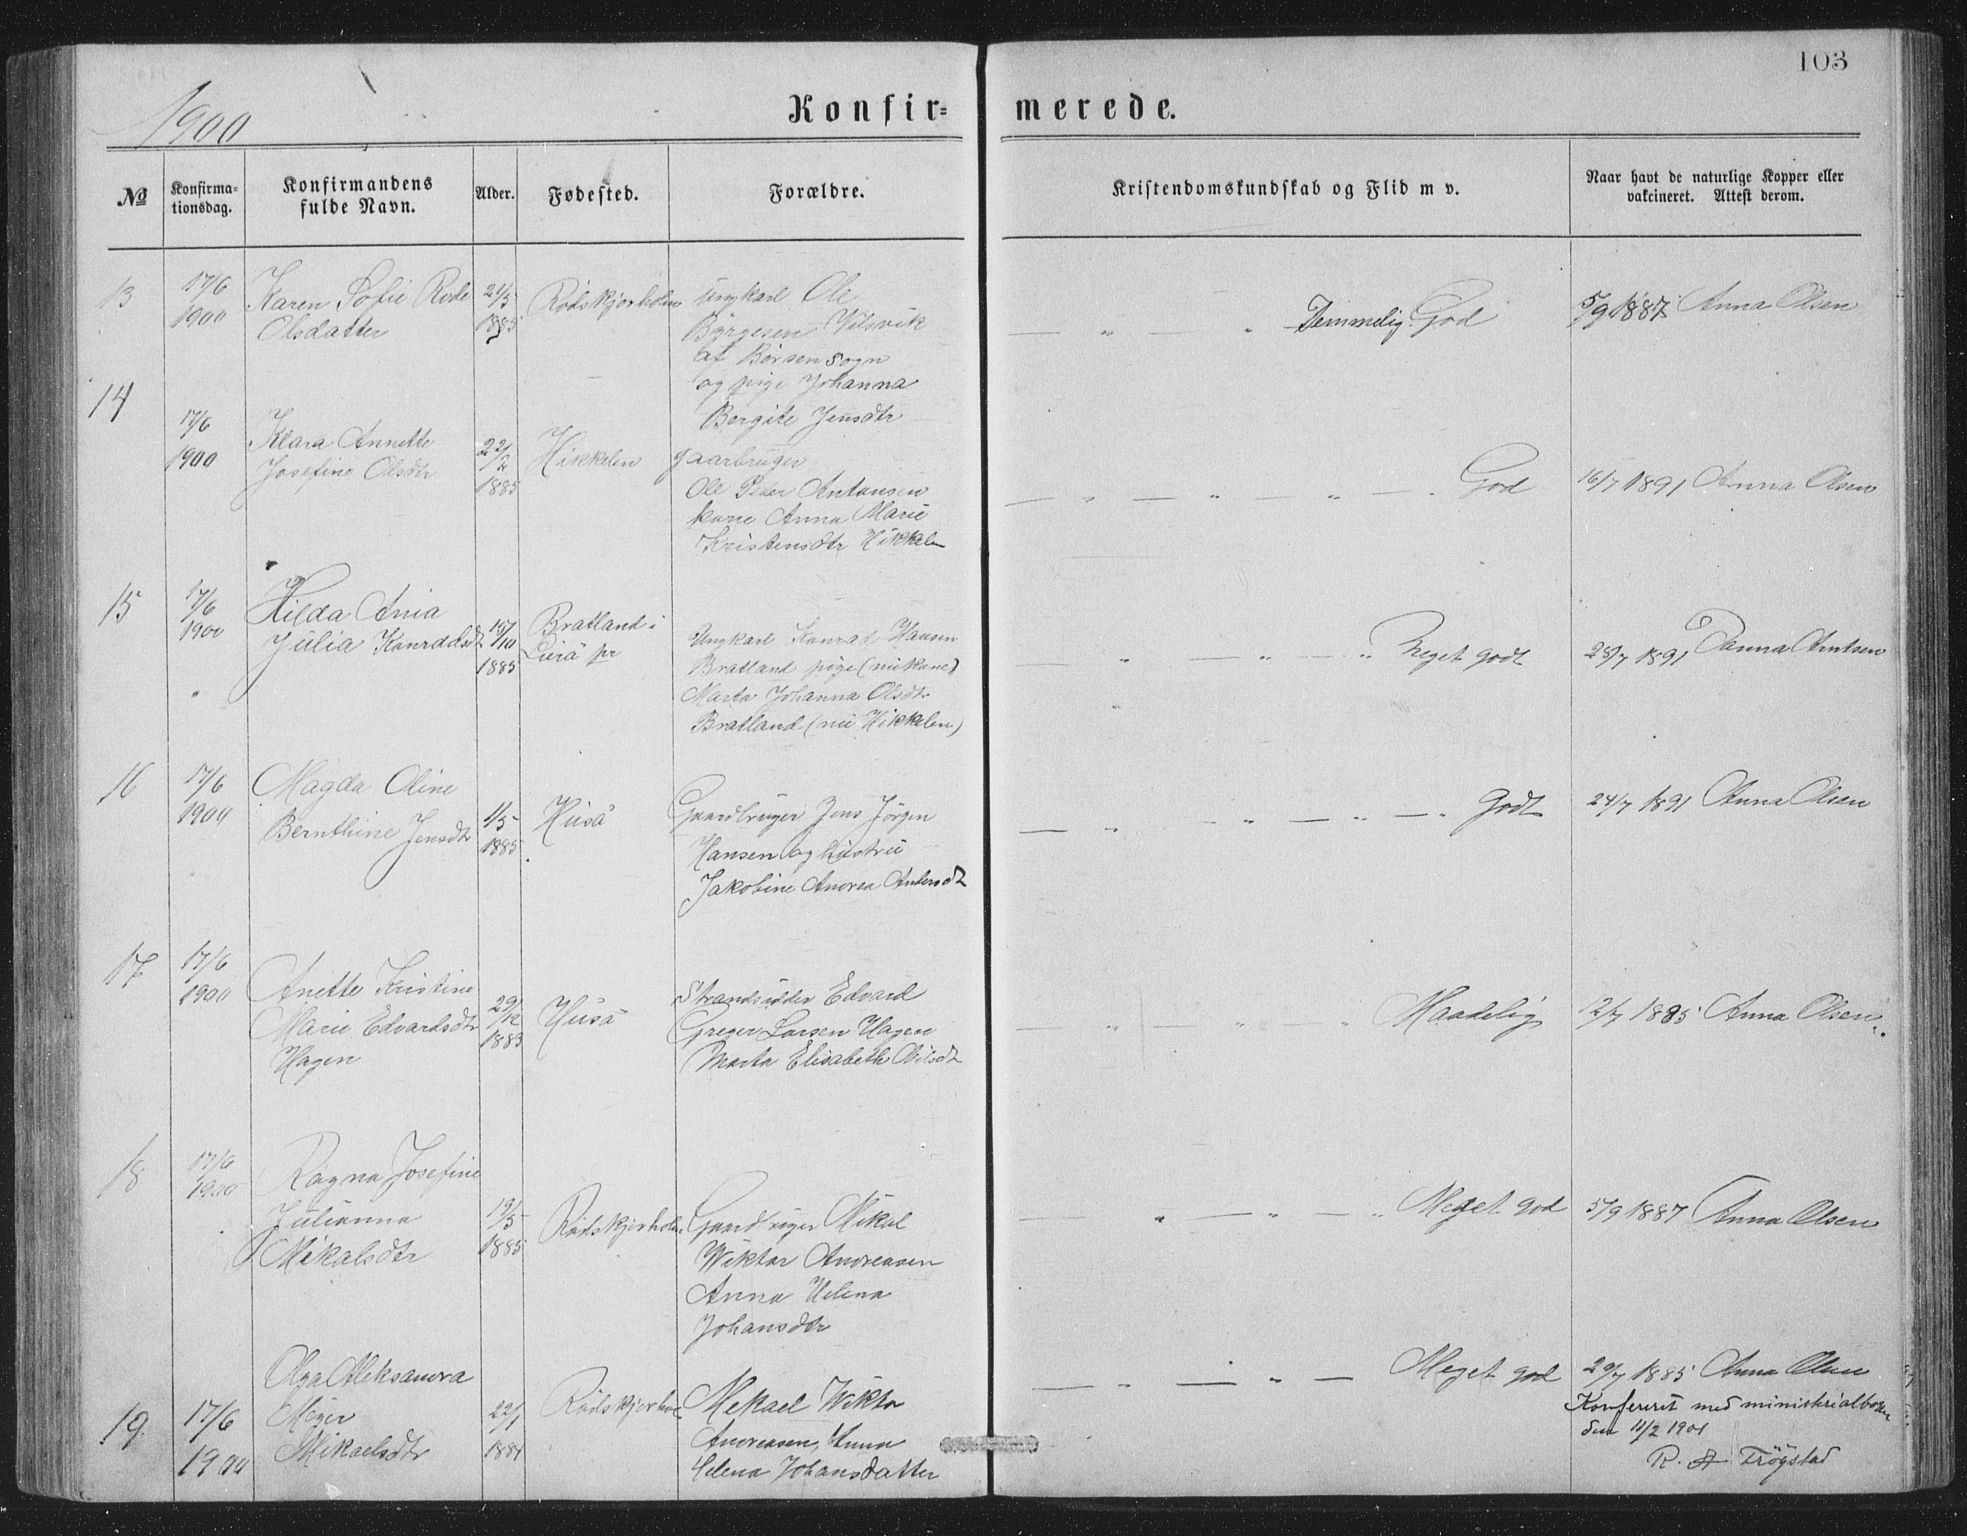 103
1900
Konfir= merede.
№
Konfirma-
tionsdag.
Konfirmandens
fulde Navn.
Alder.
Fødested.
Forældre.
Kristendomskundskab og Flid m v.
Naar havt de naturlige Kopper eller
vakcineret. Attest derom.
13
17/6
1900
Karen Sofie Rode
Olsdatter
21/5
1885
Rødskjærholm
Ungkarl Ole
Byrgesen Vilsvik
af Børsen Sogn
og pige Johanna
Bergite Jensdtr
— „ — „ Temmelig God
5/9 1887 Anna Olsen
14
17/6
1900
Klara Annette
Josefine Olsdtr
22/2
1885
Hikkelen
gaarbruger
Ole Peder Antonsen
kone Anna Marie
Kristensdtr Hikkelen
— „ — „ — „ — „ God
16/7 1891 Anna Olsen
15
17/6
1900
Hilda Ania
Julia Konradsdt
15/10
1885
Bratland i
Lurö pr
Ungkarl Konrad Hansen
Bratland pige (nu kone)
Marta Johanna Olsdtr
Bratland (nu Hikkelen)
— „ — „ — „ Meget godt
28/7 1891 Danna Arntsen
16
17/6
1900
Magda Oline
Bernthine Jensdtr
1/5
1885
Husö
Gaardbruger Jens Jörgen
Hansen og hustru
Jakobine Andrea Antonsdt
— „ — „ — „ — „ Godt
24/7 1891 Anna Olsen
17
17/6
1900
Anette Kristine
Marie Edvardsdtr
Hagen
29/12
1883
Husö
Strandsidder Edvard
Greger Larsen Hagen
Marta Elisabeth Nilsdt
— „ — „ — „ Maadelig
12/7 1885 Anna Olsen
18
17/6
1900
Ragna Josefine
Julianna
Mikalsdtr
19/5
1885
Rødskjærholm
Gaardbruger Mikal
Wiktor Andreasen
Anna Helena
Johansdtr
— „ — „ — „ Meget god
5/9 1887 Anna Olsen
19
17/6
1900
Olga Aleksandra
Meyer
Mikaelsdtr
22/1
1884
Rødskjærhol
Mekael Wiktor
Andreasen, Anna
Helena Johansdatter
— „ — „ — Meget god
29/7 1885 Anna Olsen
Konfereret med ministerialboken
den 11/2 1901
R. A Trögstad